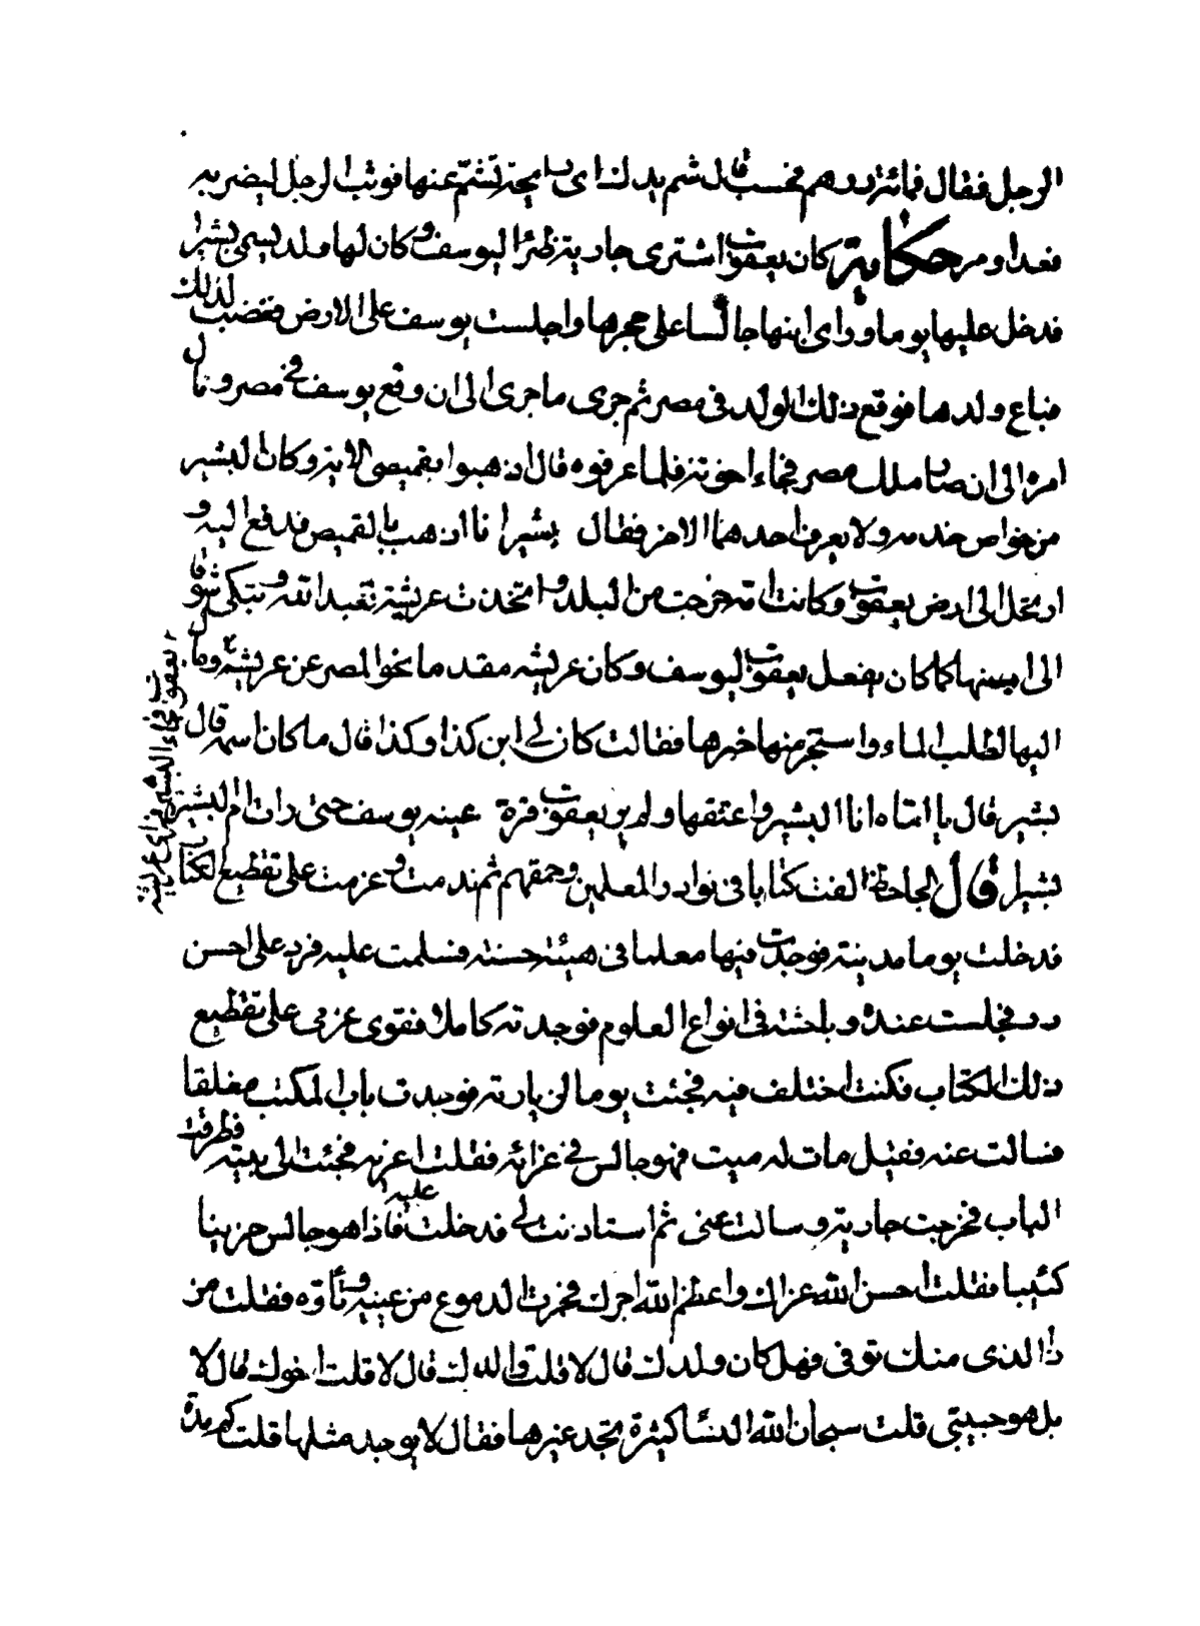 الرجل فقال فمائة درهم فحسب قال شم يدك اى رايحة تشم عنها فوثب الرجل ليضربه
فعدا ومر حكاية كان يعقوب اشترى جارية ظئرا ليوسف وكان لها ولد يسمى بشيرا
فدخل عليها يوما وراى ابنها جالسا على حجرها واجلست يوسف على الارض فغضب لذلك
فباع ولدها فوقع ذلك الولد فى مصر ثم جرى ما جرى الى ان وقع يوسف فى مصر وقال
امره الى ان صار ملك مصر فجاء اخوته فلما عرفوه قال اذهبوا بقميصى الاية وكان البشير
من خواص خدمه ولا يعرف احدهما الاخر فقال بشيرا نا اذهب بالقميص فدفع اليه و
ارتحل الى ارض يعقوب وكانت امه خرجت من البلد واتخذت عريشة تعبد الله وتبكى شوقا
الى ابنها كما كان يفعل يعقوب ليوسف وكان عريشه مقدما نحو المصر عن عريشة
اليها لطلب الماء واستخبر منها خبرها فقالت كان لى ابن كذا وكذا قال ما كان اسمه قال
بشير قال يا اماه انا البشير واعتقها ولم ير يعقوب قرة عينه يوسف حتى رات ام البشير
بشيرا قال الجاحظ الفت كتابا فى نوادر المعلمين وحمقهم ثم ندمت وعزمت على تقطيع الكتاب
فدخلت يوما مدينة فوجدت فيها معلما فى هيئة حسنة فسلمت عليه فرد على احسن
رد فجلست عنده وباحثته فى انواع العلوم فوجدته كاملا فقوى عزمى على تقطيع
ذلك الكتاب فكنت اختلف فيه فجئت يوما لزيارته فوجدت باب المكتب مغلقا
فسالت عنه فقيل مات له ميت فهو جالس فى عزائه فقلت اعزيه فجئت الى بيته فطرقت
الباب فخرجت جارية وسالت عنى ثم استاذنت لى فدخلت عليه فاذا هو جالس حزينا
كئيبا فقلت احسن الله عزاك واعظم الله اجرك فخرت الدموع من عينيه وتأوه فقلت من
ذا الذى منك توفى فهل كان ولدك قال لا قلت والدك قال لا قلت اخوك قال لا
بل هو حبيبتى قلت سبحان الله النسا كثيرة تجد غيرها فقال لا يوجد مثلها قلت كم مدة
يعقوب فجاء البشير فراى عريشة